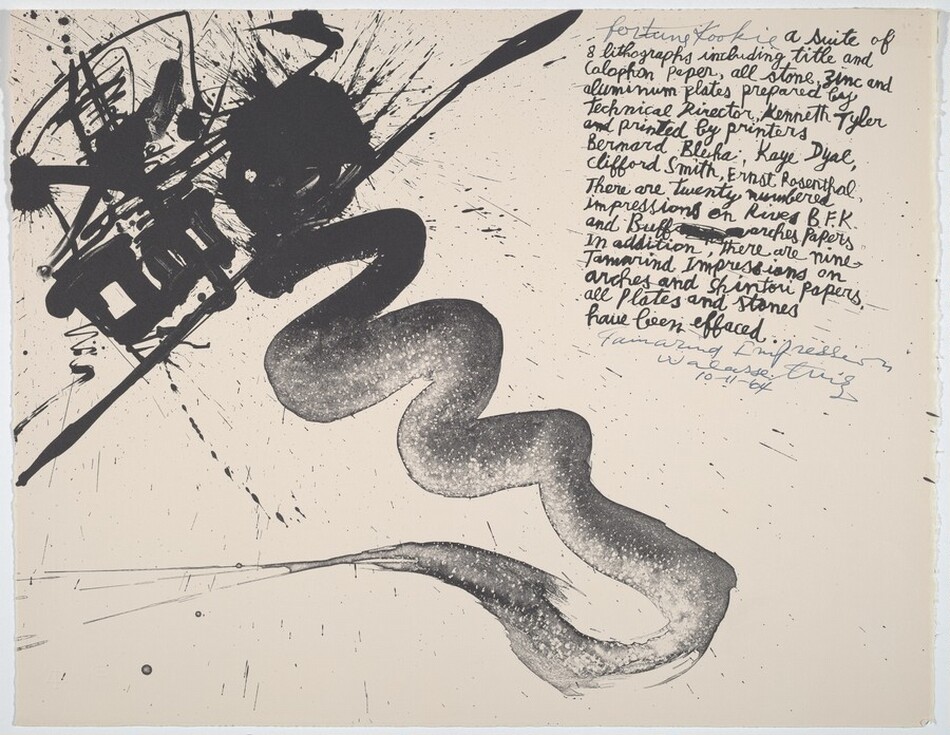 fortune Kookie a suite of
8 lithographs including title and
Colophon Paper, all stone, zinc and
aluminum plates prepared by
technical Director, Kenneth Tyler
and printed by printers
Bernard Bleha, Kaye Dyal,
Clifford Smith, Ernst Rosenthal.
There are twenty numbered
Impressions on Rives B.F.K.
and Buff arches Papers
In addition, There are nine
Tamarind Impressions on
arches and Shintori papers,
all Plates and stones
have been effaced.
Tamarind Impression
Walasse Ting
10-11-64